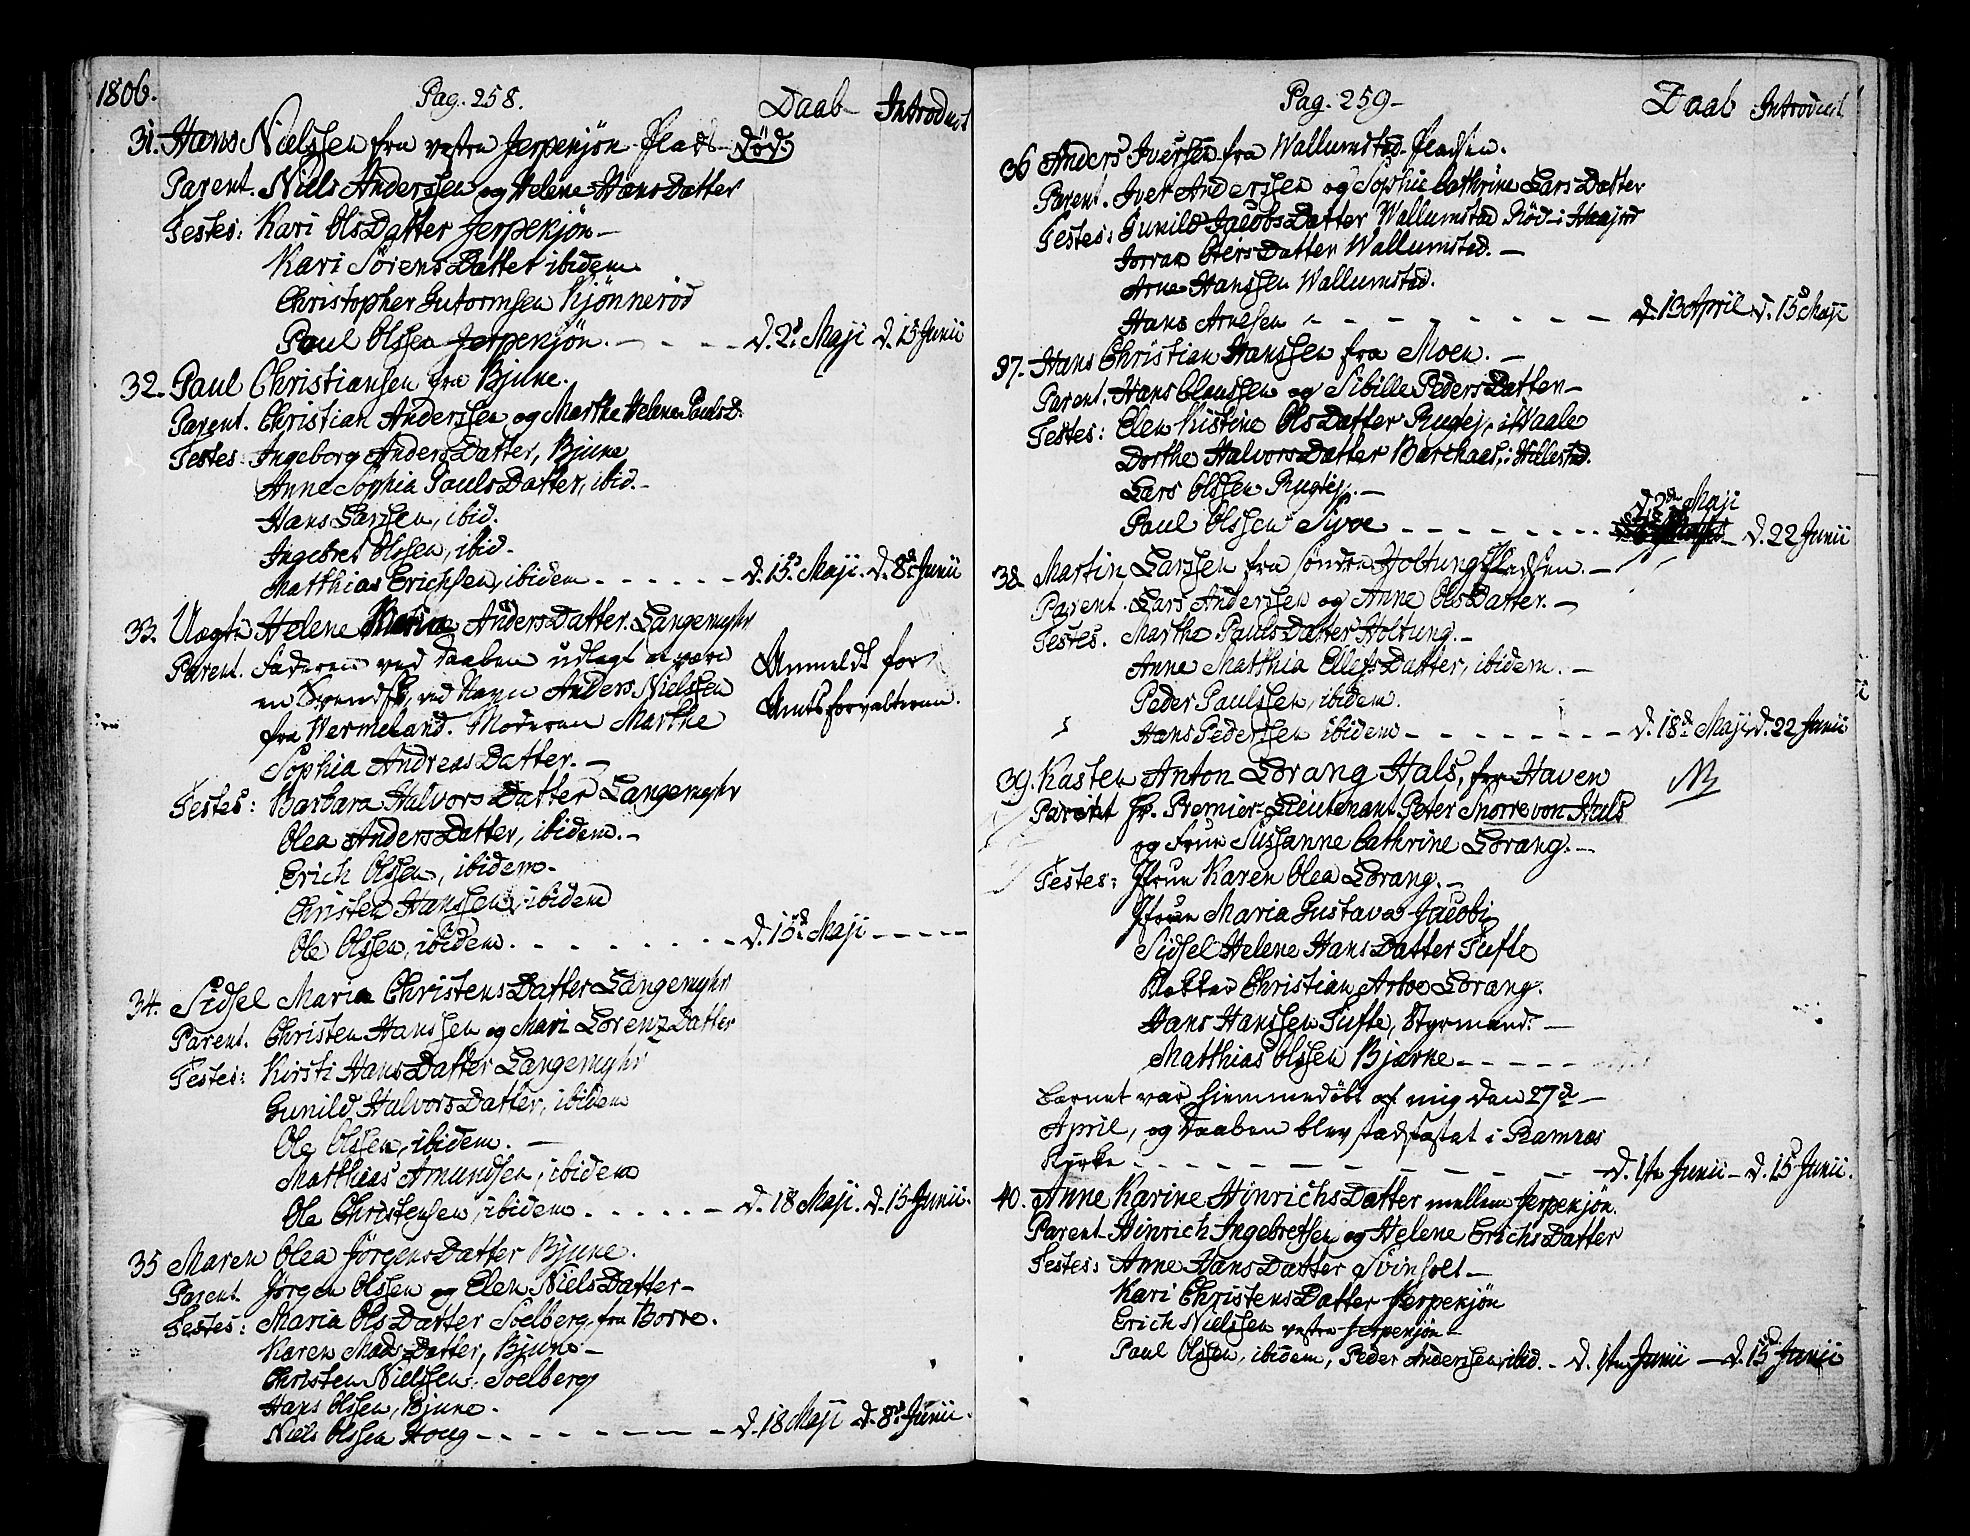 1806.
Pag. 258.
Daab Introduct
31. Hans Nielssen fra vestre Jerpekjøn Plads død.
Parent. Niels Anderssen og Helene HansDatter
Testes: Kari OlsDatter Jerpekjøn
Kari SörensDatter ibidem
Christopher Gutormsen Kjønneröd
Paul Olssen Jerpekjøn. d. 2d Maji d. 15 Junii
32. Paul Christiansen fra Bjune.
Parent. Christian Anderssen og Marthe Helene PaulsD.
Testes: Ingeborg AndersDatter, Bjune
Anne Sophia PaulsDatter, ibid.
Hans Larssen, ibid.
Ingebret Olssen, ibid.
Matthias Erichsen, ibidem d. 15d Maji. d. 8d Junii
33. Uægte Helene Maria AndersDatter. Langemyhr
Parent. Faderen ved Daaben udlagt at være
en Svensk, ved Navn Anders Nielssen
fra Wermeland. Moderen Marthe
Sophia AndreasDatter.
Anmeldt for
Amtsforvalteren.
Testes: Barbara HalvorsDatter Langemyhr
Olea AndersDatter, ibidem.
Erich Olssen, ibidem
Christen Hanssen, ibidem
Ole Olssen, ibidem. d. 15d Maji
34. Sidsel Maria ChristensDatter Langemyhr
Parent. Christen Hanssen og Mari LorenzDatter
Testes: Kirsti HansDatter Langemyhr
Gunild HalvorsDatter, ibidem
Ole Olssen, ibidem.
Matthias Amundsen, ibidem
Ole Christensen, ibidem d. 18 Maji. d. 15 Junii.
35 Maren Olea JörgensDatter Bjune.
Parent. Jørgen Olssen og Elen NielsDatter
Testes: Maria OlsDatter Solberg, fra Borre.
Karen MadsDatter, Bjune
Christen Nielssen Solberg
Hans Olssen, Bjune.
Niels Olssen Houg d. 18 Maji d. 8d Junii.
Pag. 259
Daab Introduct
36 Anders Iversen fra Wallumstad Pladsen.
Parent. Iver Anderssen og Sophie Cathrine LarsDatter
Testes: Gunild JacobsDatter Wallumstad Röd i
Jorran OlersDatter Wallumstad.
Arne Hanssen Wallumstad.
Hans Arnesen d. 13 April d. 15d Maji
37. Hans Christian Hanssen fra Moen.
Parent. Hans Claussen og Sibille PedersDatter
Testes: Elen Kistine OlsDatter Rugtej. i Waale
Dorthe HalvorsDatter i Hillestad.
Lars Olssen Rugtej.
Paul Olssen d. 2d Maji d. 22 Junii
38. Martin Larssen fra söndre Holtung Pladsen.
Parent. Lars Anderssen og Anne OlsDatter.
Testes. Marthe PaulsDatter Holtung.
Anne Matthia EllefsDatter, ibidem.
Peder Paulssen, ibidem.
Hans Pederssen ibidem d. 18d Maji d. 22 Junii
39. Kasten Anton Lorang Hals, fra Haven NB
Parent Hr. Premier-Lieutenant Peter Snorre von Hals
og Frue Sussanne Cathrine Lorang.
Testes: Frue Karen Olea Lorang.
Frue Maria Gustava Jacobi
Sidsel Helene HansDatter Tufte
Klokker Christian Arboe Lorang.
Hans Hanssen Tufte, Styrmand.
Matthias Olssen Bjærke
Barnet var hiemmedöbt af mig den 27d
April, og Daaben blev stadfæstet i Ramnæs
Kirke d. 1ste Junii d. 15 Junii.
40. Anne Karine HinrichsDatter mellem Jerpekjøn.
Parent. Hinrich Ingebretsen og Helene ErichsDatter
Testes: Anne HansDatter Svinholt
Kari ChristensDatter Jerpekjøn
Erich Nielssen vestre Jerpekjøn
Paul Olssen, ibidem, Peder Anderssen, ibid. d. 1ste Junii d. 15 Junii